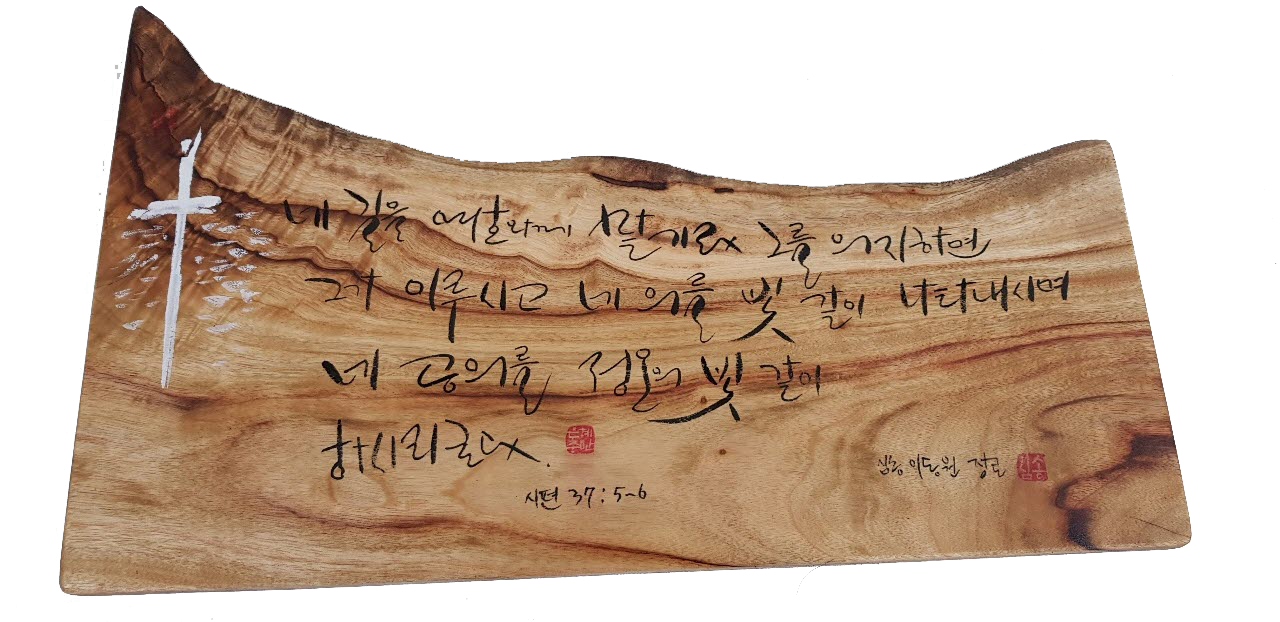 네 길을 여호와께 맡기라 그를 의지하면
그가 이루시고 네 의를 빛 같이 나타내시며
네 공의를 정오의 빛 같이
하시리로다.
시편 37:5~6
이동원 장로